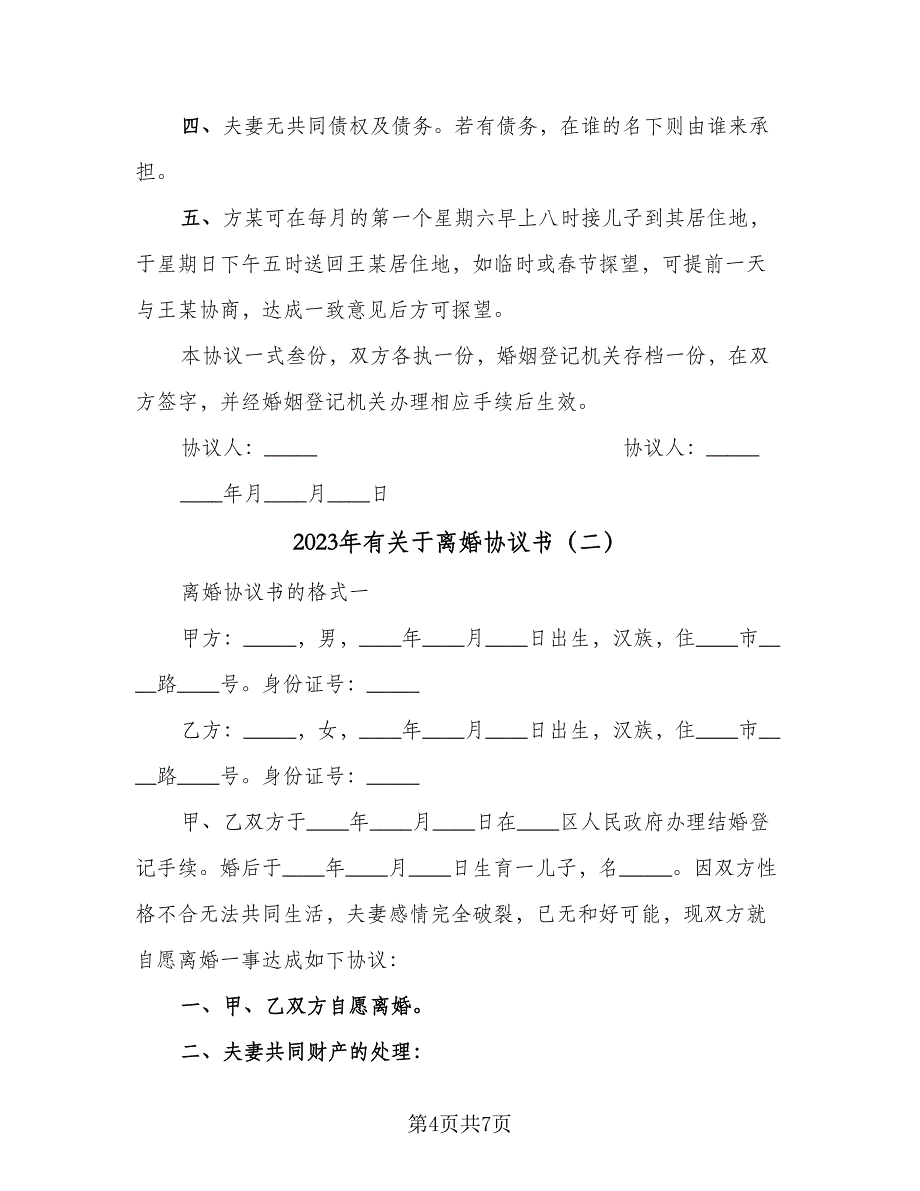 四、夫妻无共同债权及债务。若有债务，在谁的名下则由谁来承
担。
五、方某可在每月的第一个星期六早上八时接儿子到其居住地，
于星期日下午五时送回王某居住地，如临时或春节探望，可提前一天
与王某协商，达成一致意见后方可探望。
本协议一式叁份，双方各执一份，婚姻登记机关存档一份，在双
方签字，并经婚姻登记机关办理相应手续后生效。
协议人：_____ 协议人：_____
____年月____月____日
2023年有关于离婚协议书（二）
离婚协议书的格式一
甲方：_____，男，____年____月____日出生，汉族，住____市__
__路____号。身份证号：_____
乙方：_____，女，____年____月____日出生，汉族，住____市__
__路____号。身份证号：_____
甲、乙双方于____年____月____日在____区人民政府办理结婚登
记手续。婚后于____年____月____日生育一儿子，名_____。因双方性
格不合无法共同生活，夫妻感情完全破裂，已无和好可能，现双方就
自愿离婚一事达成如下协议：
一、甲、乙双方自愿离婚。
二、夫妻共同财产的处理：
第4页共7页